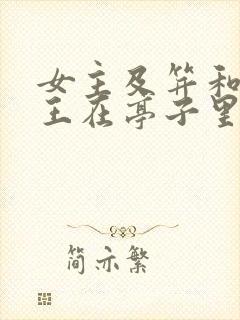 女主及笄和
王在亭子里
简亦繁